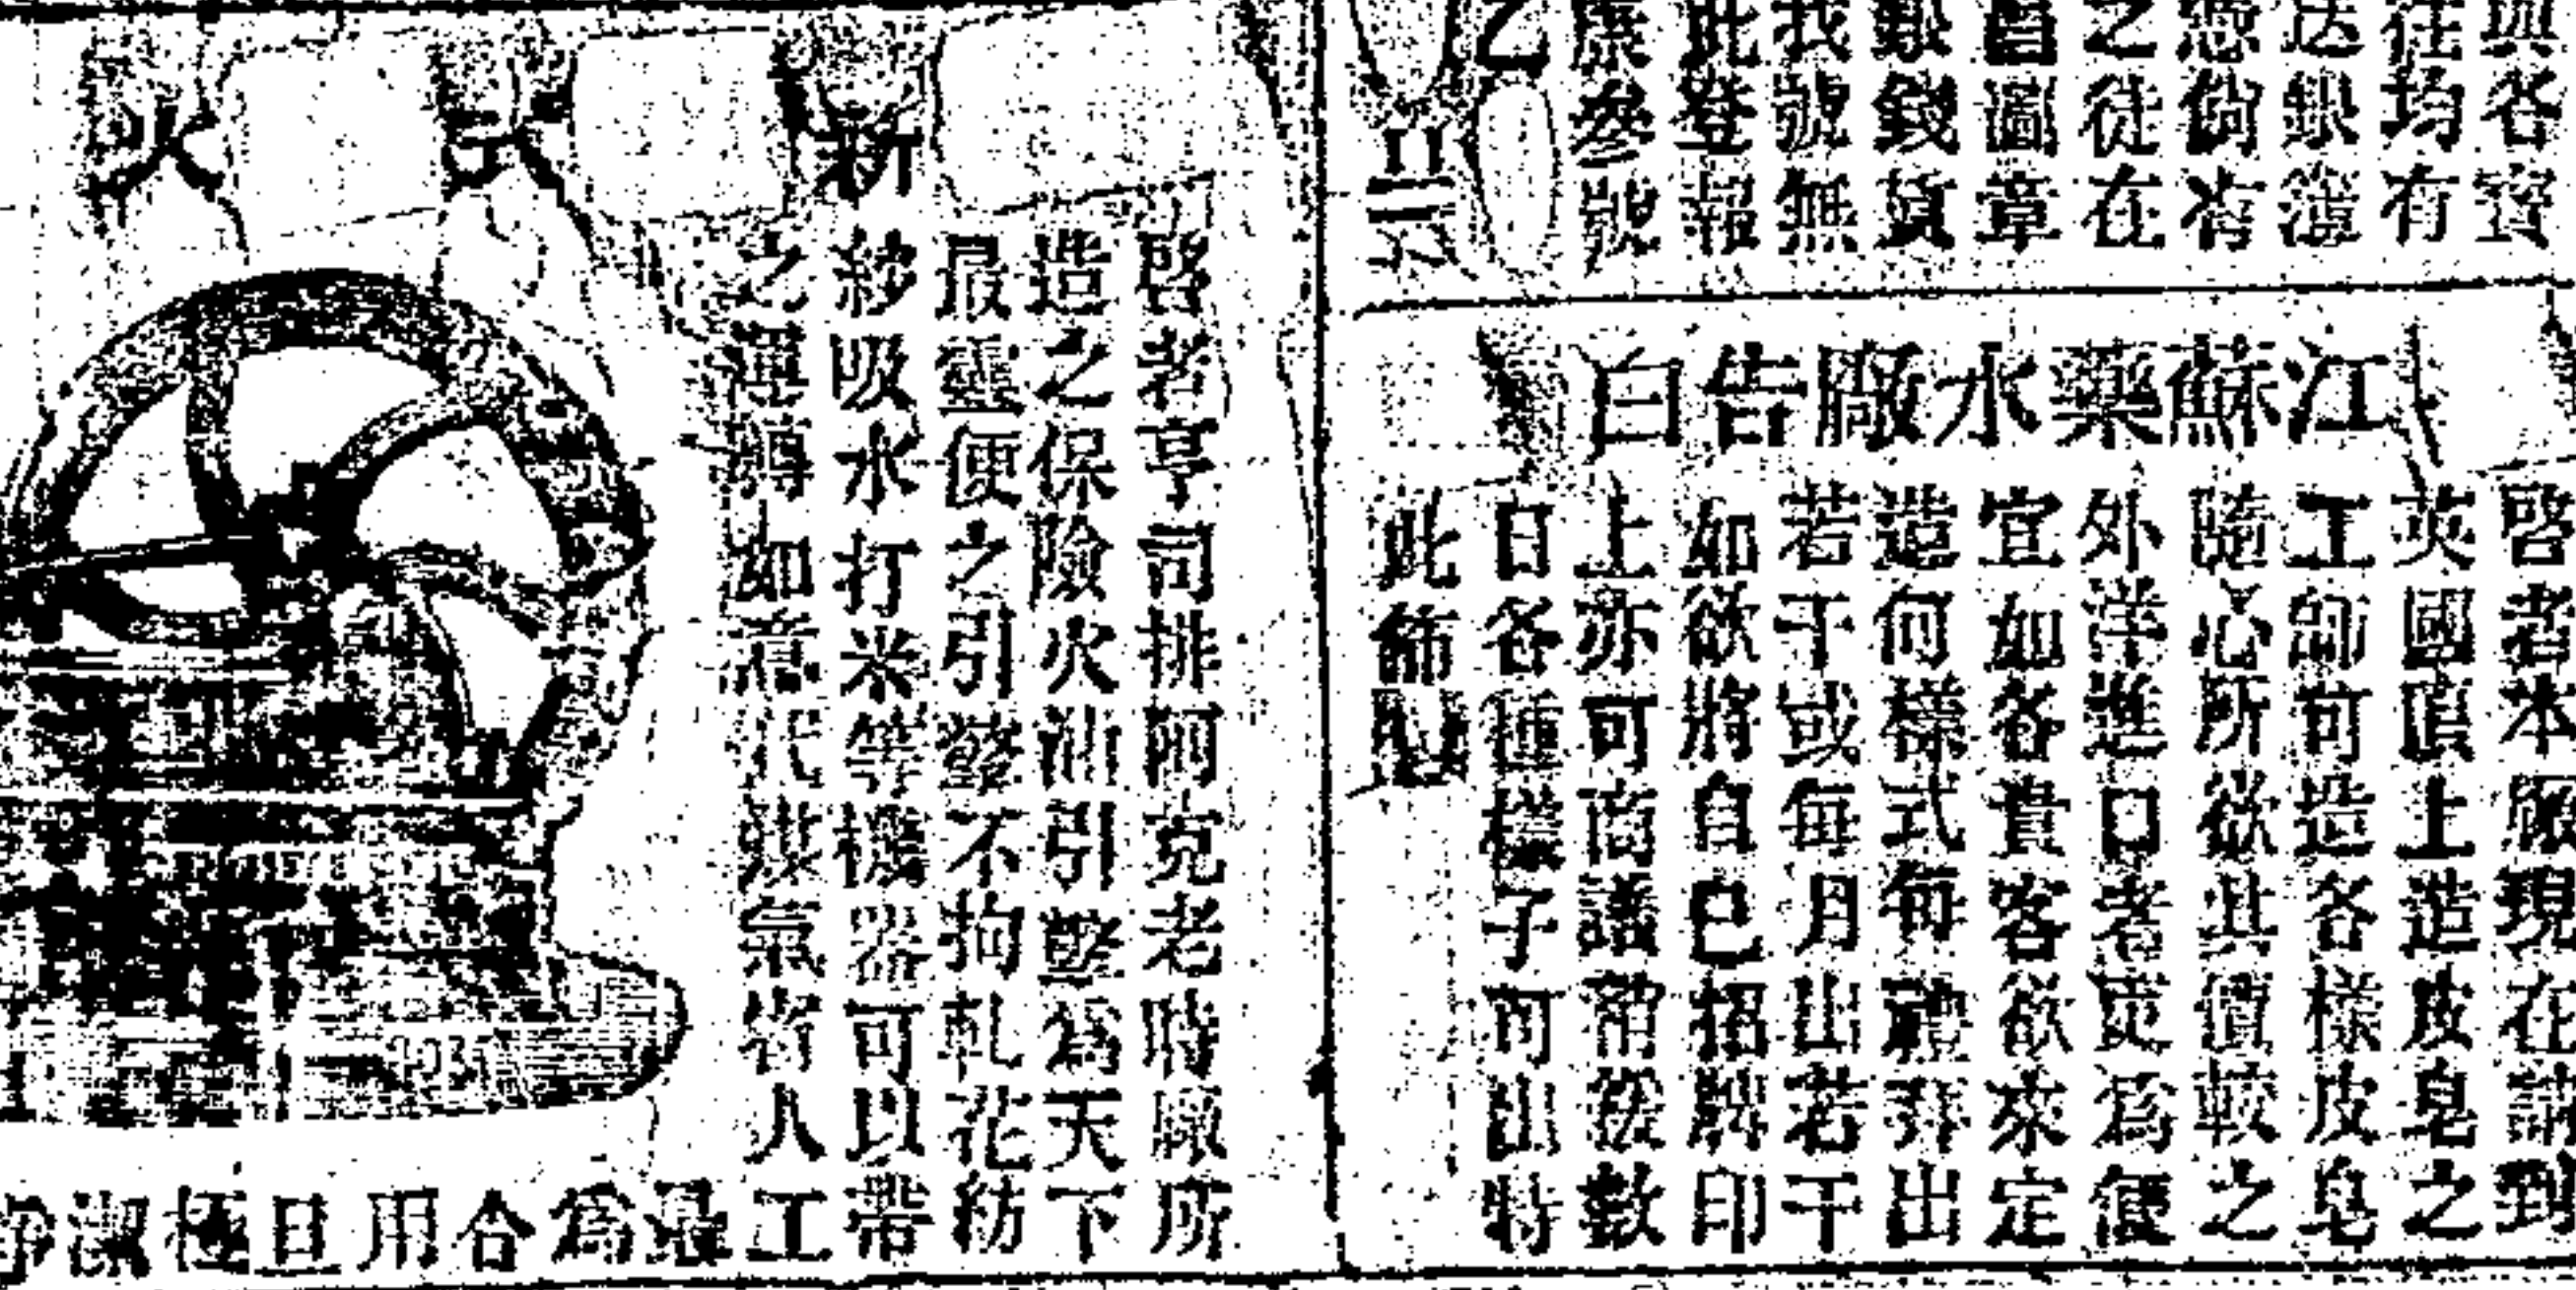 與各寶
往均有
送銀簿
怹倘有
之徒在
自圖章
銀錢貨
我號無
此登報
參號
江蘇藥水廠告白
啓者本廠現在請到
英國頂上造皮皂之
工師可造各樣皮皂
隨心所欲其價較之
外洋進口者更為便
宜如各貴客欲來定
造何樣式每禮拜出
若干或每月出若干
如欲將自己招牌印
上亦可商議常發數
日各種樣子可出特
此佈
新
火
啓者亨司排阿克老時廠所
造之保險火油引擎為天下
最靈便之引擎不拘軋花紡
紗吸水打米等機器可以帶
之運轉如意比煤氣省人工
最為合用且極潔淨